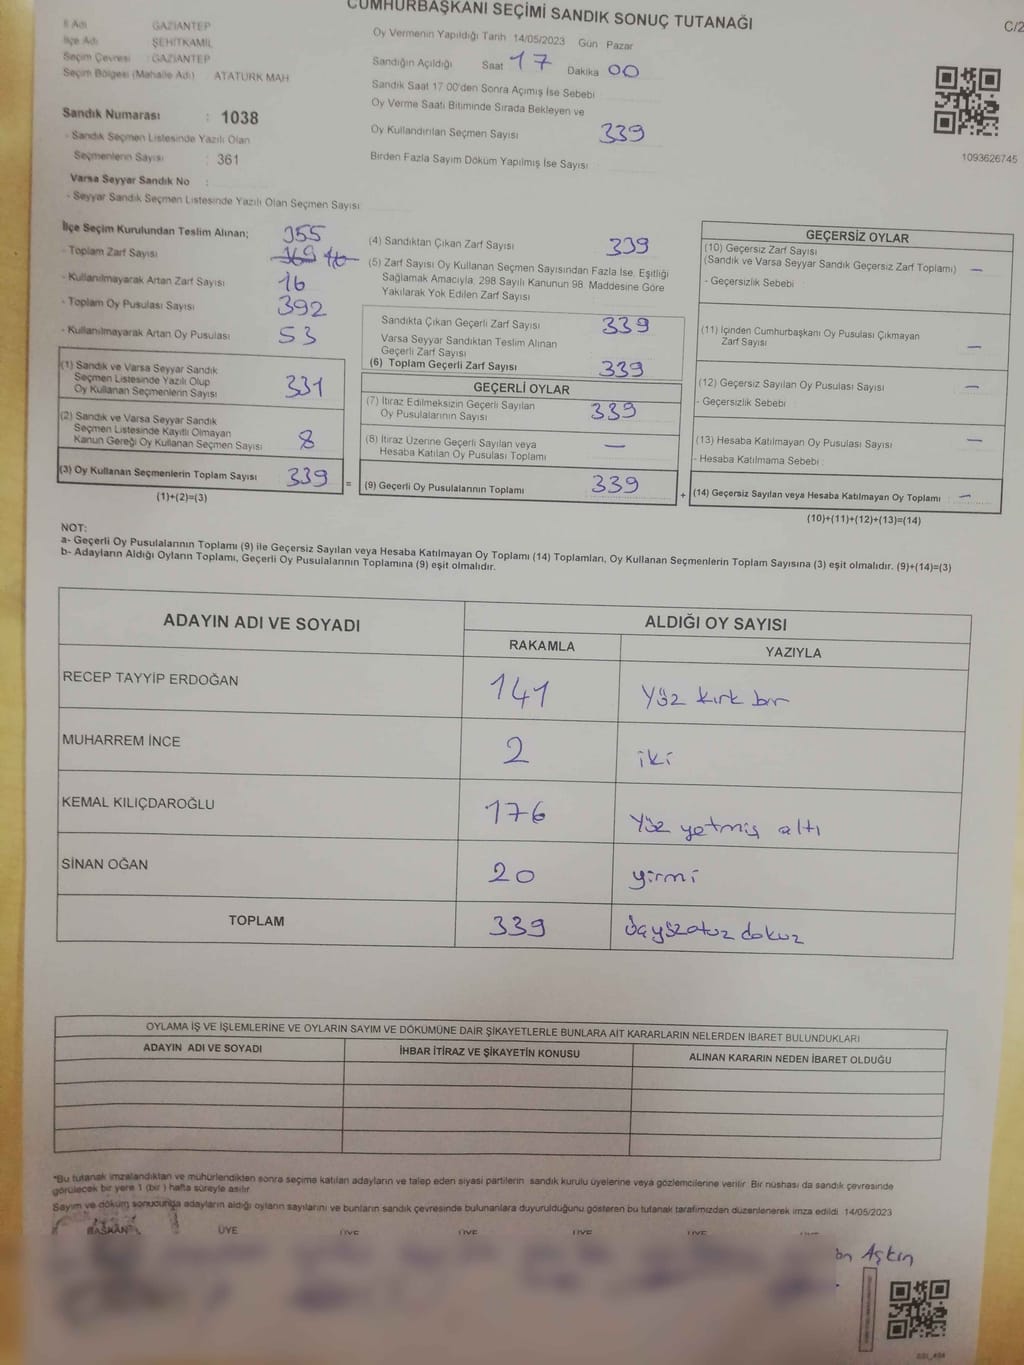 CUMHURBAŞKANI SEÇİMİ SANDIK SONUÇ TUTANAĞI
C/2
İl Adı GAZİANTEP
İlçe Adı ŞEHİTKAMİL
Seçim Çevresi : GAZİANTEP
Seçim Bölgesi (Mahalle Adı) ATATÜRK MAH
Oy Vermenin Yapıldığı Tarih 14/05/2023 Gün Pazar
Sandığın Açıldığı Saat 17 Dakika 00
Sandık Saat 17 00'den Sonra Açımış İse Sebebi
Oy Verme Saati Bitiminde Sırada Bekleyen ve
Oy Kullandırılan Seçmen Sayısı 339
Birden Fazla Sayım Döküm Yapılmış İse Sayısı
1093626745
Sandık Numarası : 1038
- Sandık Seçmen Listesinde Yazılı Olan
Seçmenlerin Sayısı : 361
Varsa Seyyar Sandık No :
- Seyyar Sandık Seçmen Listesinde Yazılı Olan Seçmen Sayısı
İlçe Seçim Kurulundan Teslim Alınan; 355
- Toplam Zarf Sayısı
- Kullanılmayarak Artan Zarf Sayısı 16
- Toplam Oy Pusulası Sayısı 392
- Kullanılmayarak Artan Oy Pusulası 53
(1) Sandık ve Varsa Seyyar Sandık
Seçmen Listesinde Yazılı Olup
Oy Kullanan Seçmenlerin Sayısı 331
(2) Sandık ve Varsa Seyyar Sandık
Seçmen Listesinde Kayıtlı Olmayan
Kanun Gereği Oy Kullanan Seçmen Sayısı 8
(3) Oy Kullanan Seçmenlerin Toplam Sayısı 339
(1)+(2)=(3)
=
(4) Sandıktan Çıkan Zarf Sayısı 339
(5) Zarf Sayısı Oy Kullanan Seçmen Sayısından Fazla İse, Eşitliği
Sağlamak Amacıyla, 298 Sayılı Kanunun 98. Maddesine Göre
Yakılarak Yok Edilen Zarf Sayısı
Sandıkta Çıkan Geçerli Zarf Sayısı 339
Varsa Seyyar Sandıktan Teslim Alınan
Geçerli Zarf Sayısı
(6) Toplam Geçerli Zarf Sayısı 339
GEÇERLİ OYLAR
(7) İtiraz Edilmeksizin Geçerli Sayılan
Oy Pusulalarının Sayısı 339
(8) İtiraz Üzerine Geçerli Sayılan veya
Hesaba Katılan Oy Pusulası Toplamı —
(9) Geçerli Oy Pusulalarının Toplamı 339
+
GEÇERSİZ OYLAR
(10) Geçersiz Zarf Sayısı
(Sandık ve Varsa Seyyar Sandık Geçersiz Zarf Toplamı) —
- Geçersizlik Sebebi
(11) İçinden Cumhurbaşkanı Oy Pusulası Çıkmayan
Zarf Sayısı —
(12) Geçersiz Sayılan Oy Pusulası Sayısı —
- Geçersizlik Sebebi
(13) Hesaba Katılmayan Oy Pusulası Sayısı —
- Hesaba Katılmama Sebebi
(14) Geçersiz Sayılan veya Hesaba Katılmayan Oy Toplamı —
(10)+(11)+(12)+(13)=(14)
NOT:
a- Geçerli Oy Pusulalarının Toplamı (9) ile Geçersiz Sayılan veya Hesaba Katılmayan Oy Toplamı (14) Toplamları, Oy Kullanan Seçmenlerin Toplam Sayısına (3) eşit olmalıdır. (9)+(14)=(3)
b- Adayların Aldığı Oyların Toplamı, Geçerli Oy Pusulalarının Toplamına (9) eşit olmalıdır.
ADAYIN ADI VE SOYADI ALDIĞI OY SAYISI
RAKAMLA YAZIYLA
RECEP TAYYİP ERDOĞAN 141 Yüz kırk bir
MUHARREM İNCE 2 iki
KEMAL KILIÇDAROĞLU 176 Yüz yetmiş altı
SİNAN OĞAN 20 yirmi
TOPLAM 339 üçyüzotuz dokuz
OYLAMA İŞ VE İŞLEMLERİNE VE OYLARIN SAYIM VE DÖKÜMÜNE DAİR ŞİKAYETLERLE BUNLARA AİT KARARLARIN NELERDEN İBARET BULUNDUKLARI
ADAYIN ADI VE SOYADI İHBAR İTİRAZ VE ŞİKAYETİN KONUSU ALINAN KARARIN NEDEN İBARET OLDUĞU
*Bu tutanak imzalandıktan ve mühürlendikten sonra seçime katılan adayların ve talep eden siyasi partilerin sandık kurulu üyelerine veya gözlemcilerine verilir. Bir nüshası da sandık çevresinde
görülecek bir yere 1 (bir) hafta süreyle asılır.
Sayım ve döküm sonucunda adayların aldığı oyların sayılarını ve bunların sandık çevresinde bulunanlara duyurulduğunu gösteren bu tutanak tarafımızdan düzenlenerek imza edildi 14/05/2023
BAŞKAN ÜYE ÜYE ÜYE ÜYE ÜYE
Aşkın